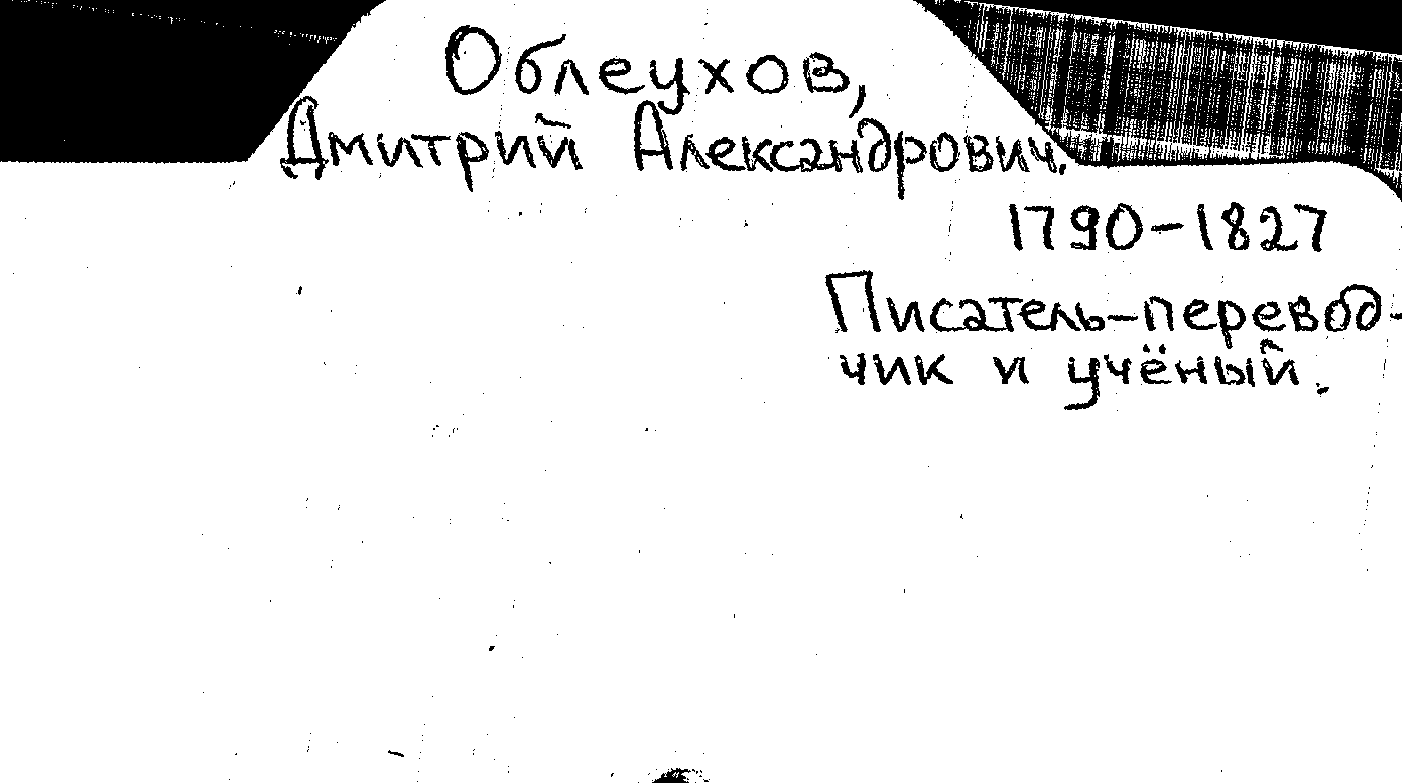 Облеухов,
Дмитрий Александрович.
1790-1827
Писатель-перевод-
чик и учёный.